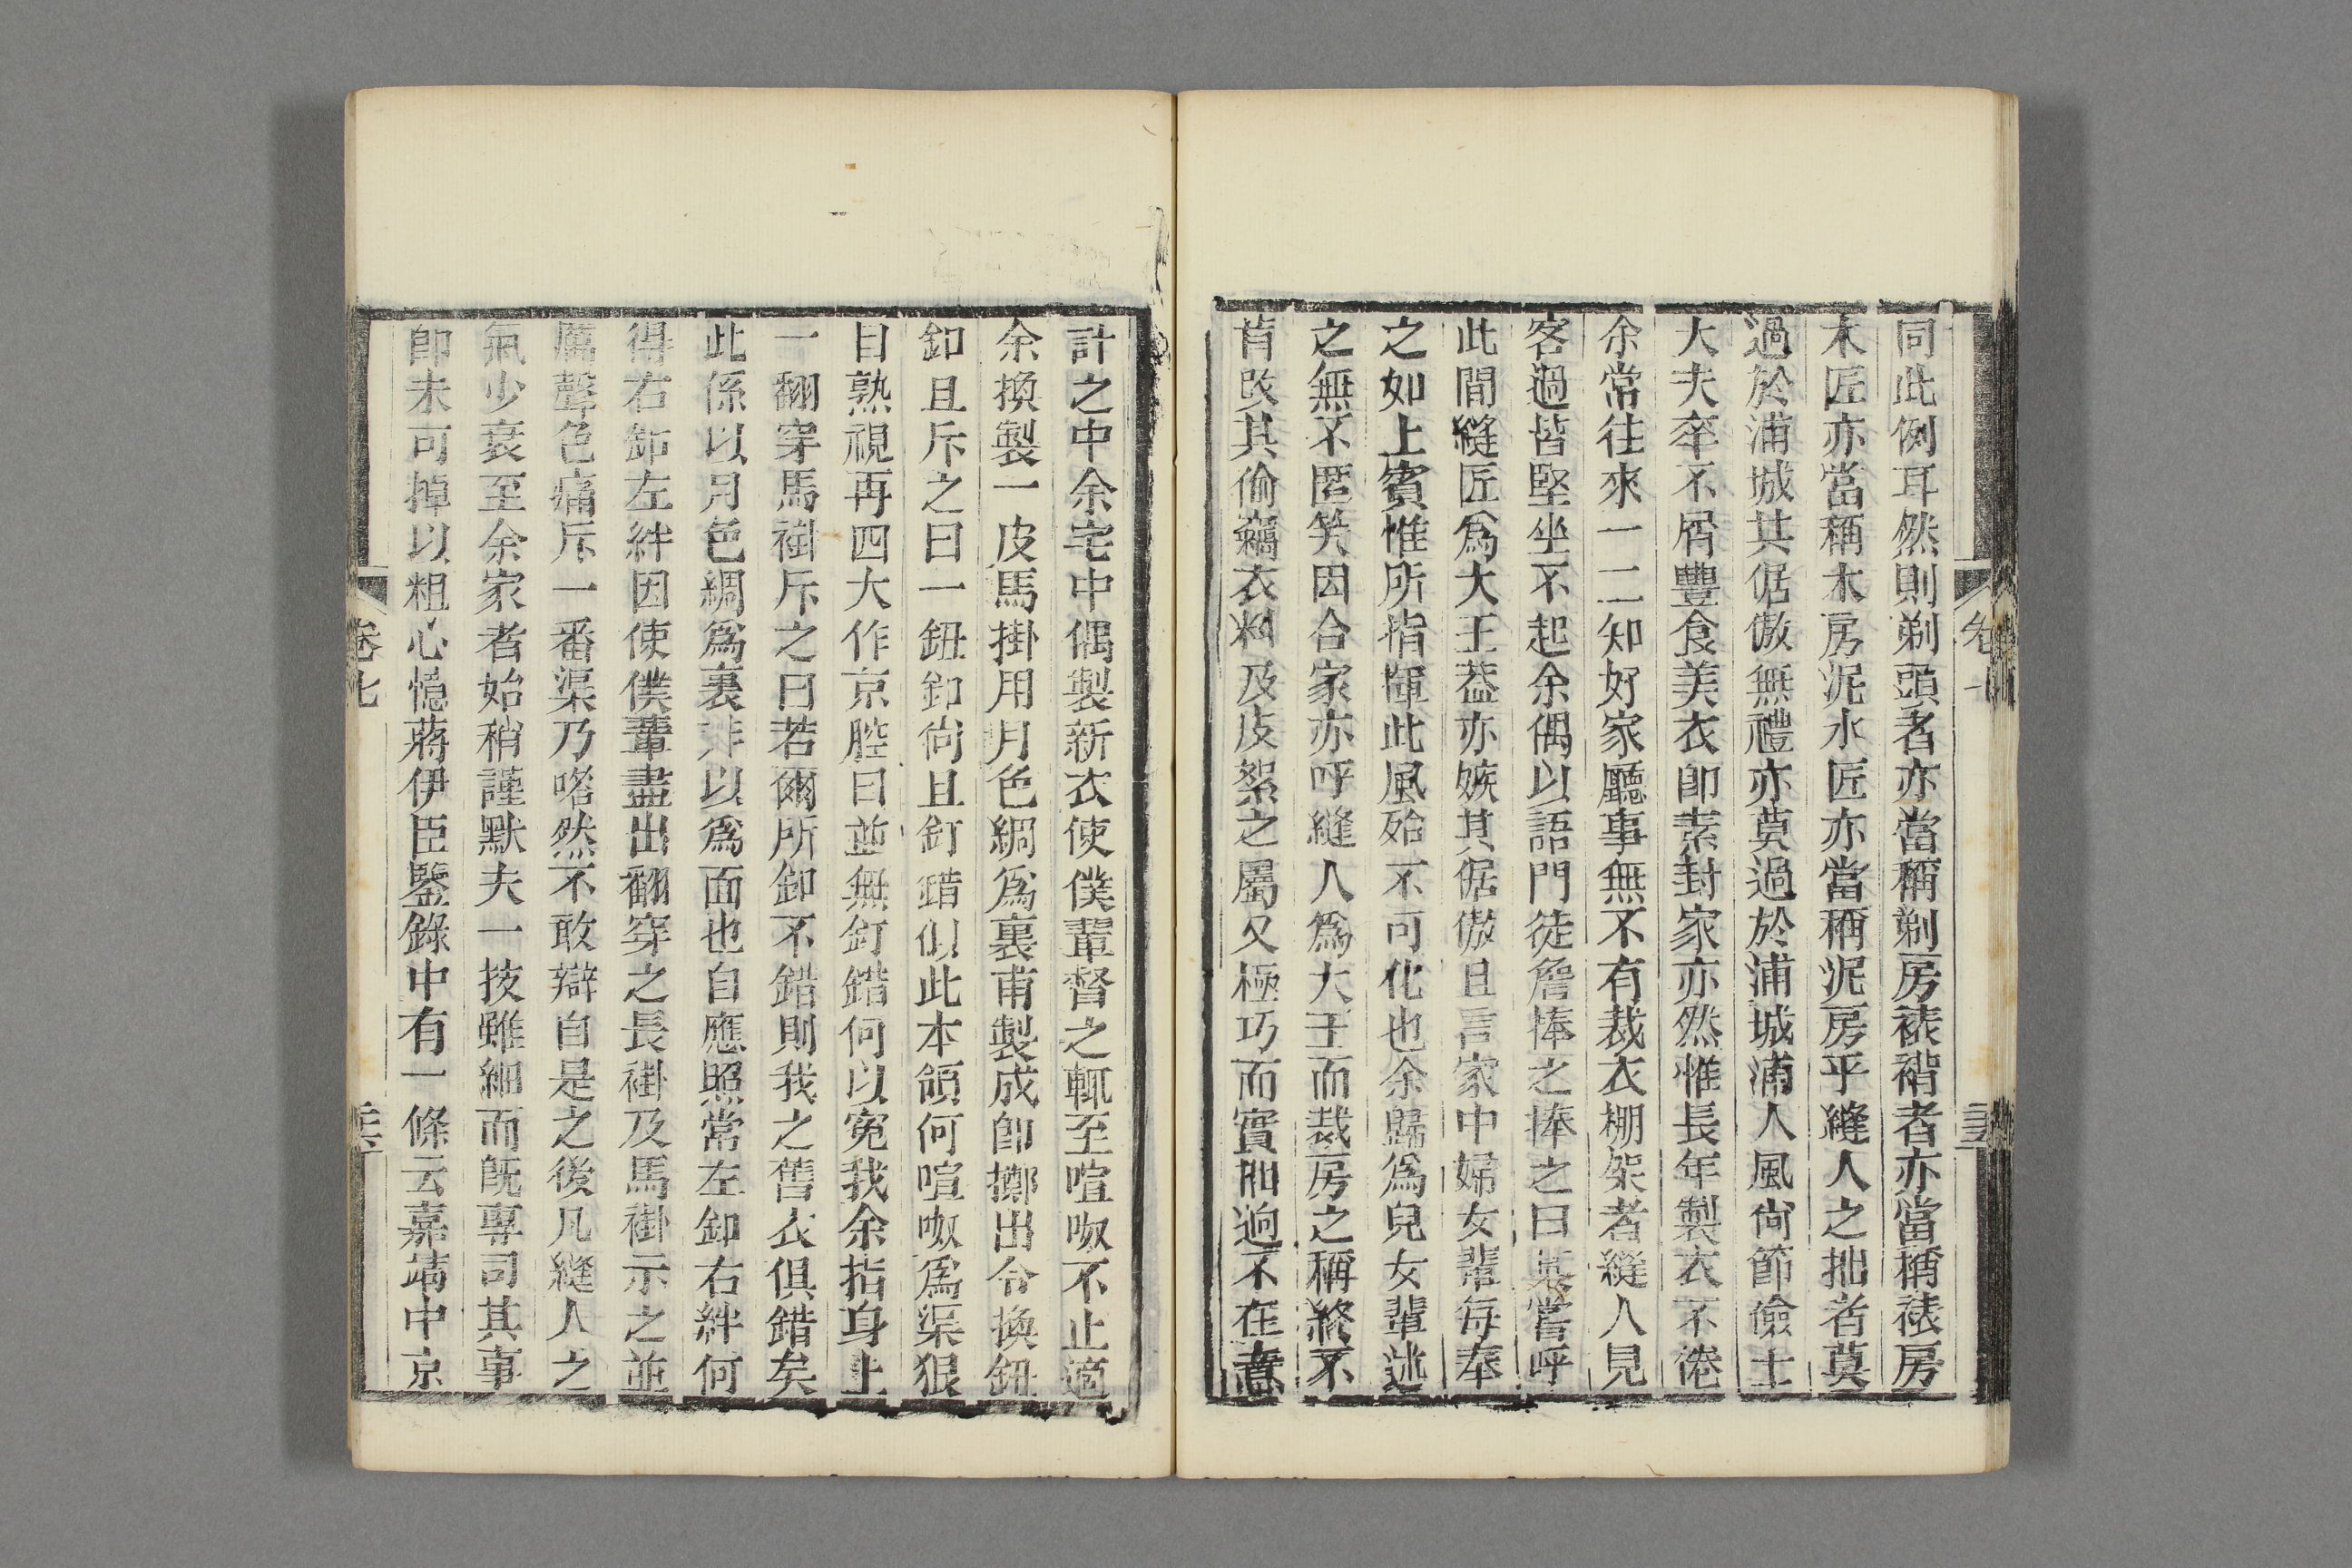 同此例耳然則剃頭者亦當稱剃房裱褙者亦當稱裱房
木匠亦當稱木房泥水匠亦當稱泥房乎縫人之拙者莫
過於浦城其倨傲無禮亦莫過於浦城浦人風尙節儉士
大夫卒不屑豐食美衣卽素封家亦然惟長年製衣不倦
余常往來一二知好家廳事無不有裁衣棚架者縫人見
客過皆堅坐不起余偶以語門徒詹捧之捧之曰某嘗呼
此間縫匠爲大王葢亦嫉其倨傲且言家中婦女輩每奉
之如上賓惟所指揮此風殆不可化也余歸爲兒女輩述
之無不匿笑因合家亦呼縫人爲大王而裁房之稱終不
肯改其偷竊衣料及皮絮之屬又極巧而實拙逈不在意
計之中余宅中偶製新衣使僕輩督之輒至喧呶不止適
余換製一皮馬掛用月色綢爲裏甫製成卽擲出令換鈕
釦且斥之曰一鈕釦尙且釘錯似此本領何喧呶爲渠狠
目熟視再四大作京腔曰並無釘錯何以寃我余指身上
一翻穿馬褂斥之曰若爾所釦不錯則我之舊衣俱錯矣
此係以月色綢爲裏非以爲面也自應照常左釦右絆何
得右釦左絆因使僕輩盡出翻穿之長褂及馬褂示之並
厲聲色痛斥一番渠乃嗒然不敢辯自是之後凡縫人之
氣少衰至余家者始稍謹默夫一技雖細而旣專司其事
卽未可掉以粗心憶蔣伊臣鑒錄中有一條云嘉靖中京
卷七